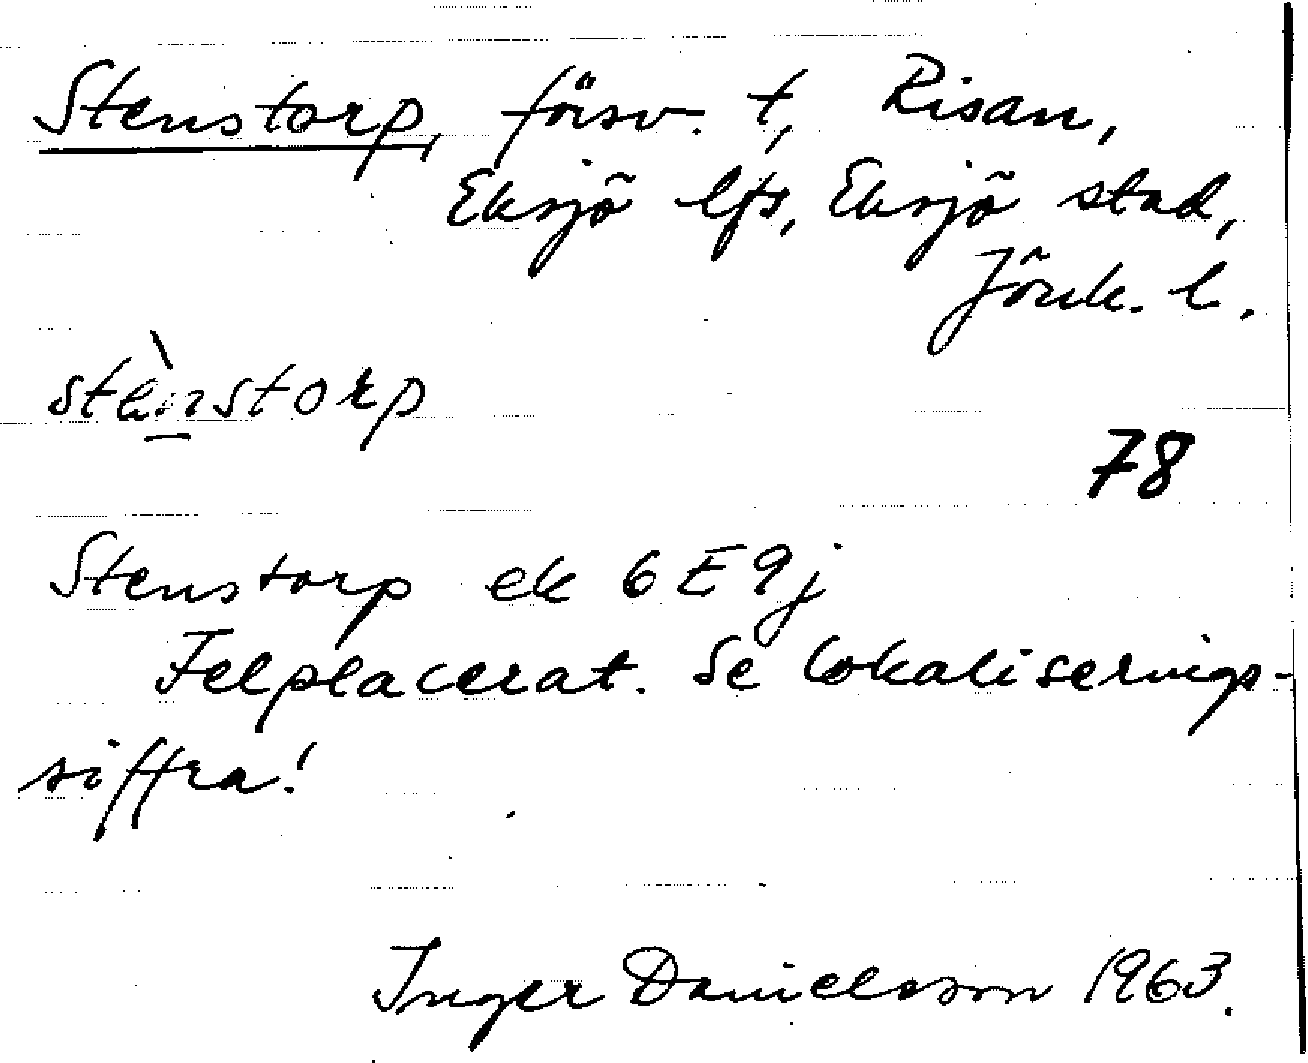 Stenstorp, försv. t, Risan,
Eksjö lfs, Eksjö stad,
Jönk. l.
stènstorp
78
Stenstorp ek 6E9j
Felplacerat. Se lokaliserings-
siffra!
Inger Danielsson 1963.